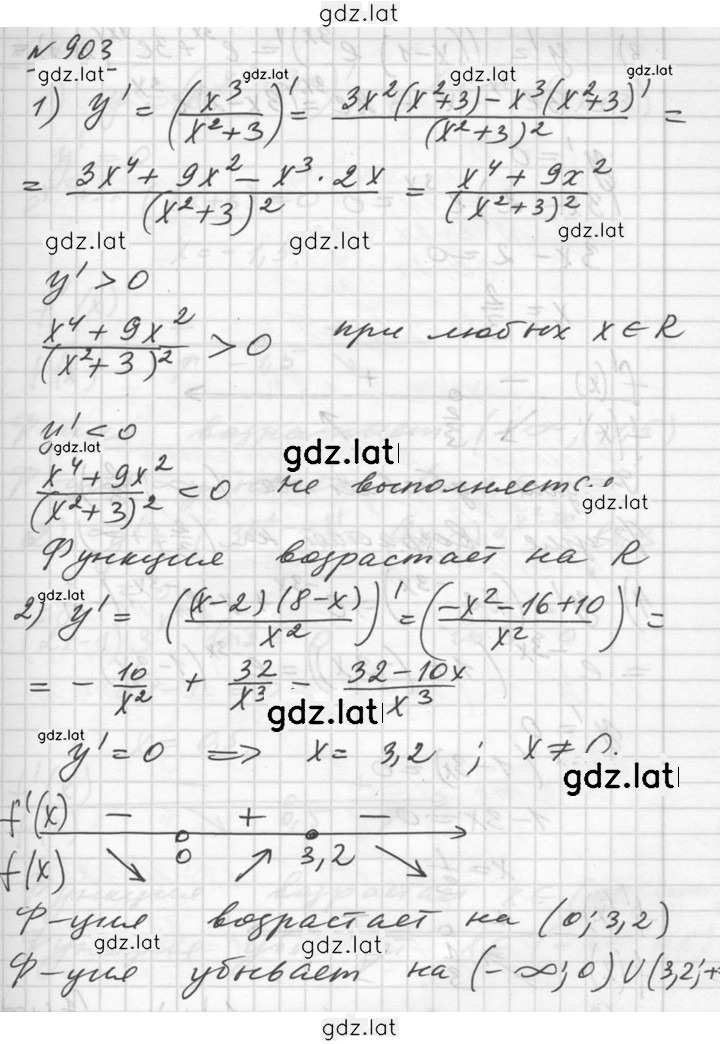 gdz.lat
№ 903
gdz.lat gdz.lat
1) y' = (x³/(x²+3))' = (3x²(x²+3) − x³(x²+3)')/(x²+3)² =
= (3x⁴ + 9x² − x³·2x)/(x²+3)² = (x⁴ + 9x²)/(x²+3)²
gdz.lat gdz.lat gdz.lat
y' > 0
(x⁴ + 9x²)/(x²+3)² > 0 при любых x ∈ R
y' < 0
gdz.lat gdz.lat
(x⁴ + 9x²)/(x²+3)² < 0 не выполняетс
gdz.lat
Функция возрастает на R
gdz.lat
2) y' = ((x−2)(8−x)/x²)' = ((−x²−16+10)/x²)' =
= − 10/x² + 32/x³ − (32−10x)/x³
gdz.lat
gdz.lat
y' = 0 => x = 3,2 ; x ≠ 0.
gdz.lat
f'(x) − + −
0 3,2
f(x) ↘ ↗ ↘
Ф-ция возрастает на (0; 3,2)
gdz.lat gdz.lat
Ф-ция убывает на (−∞; 0) ∪ (3,2; +
gdz.lat